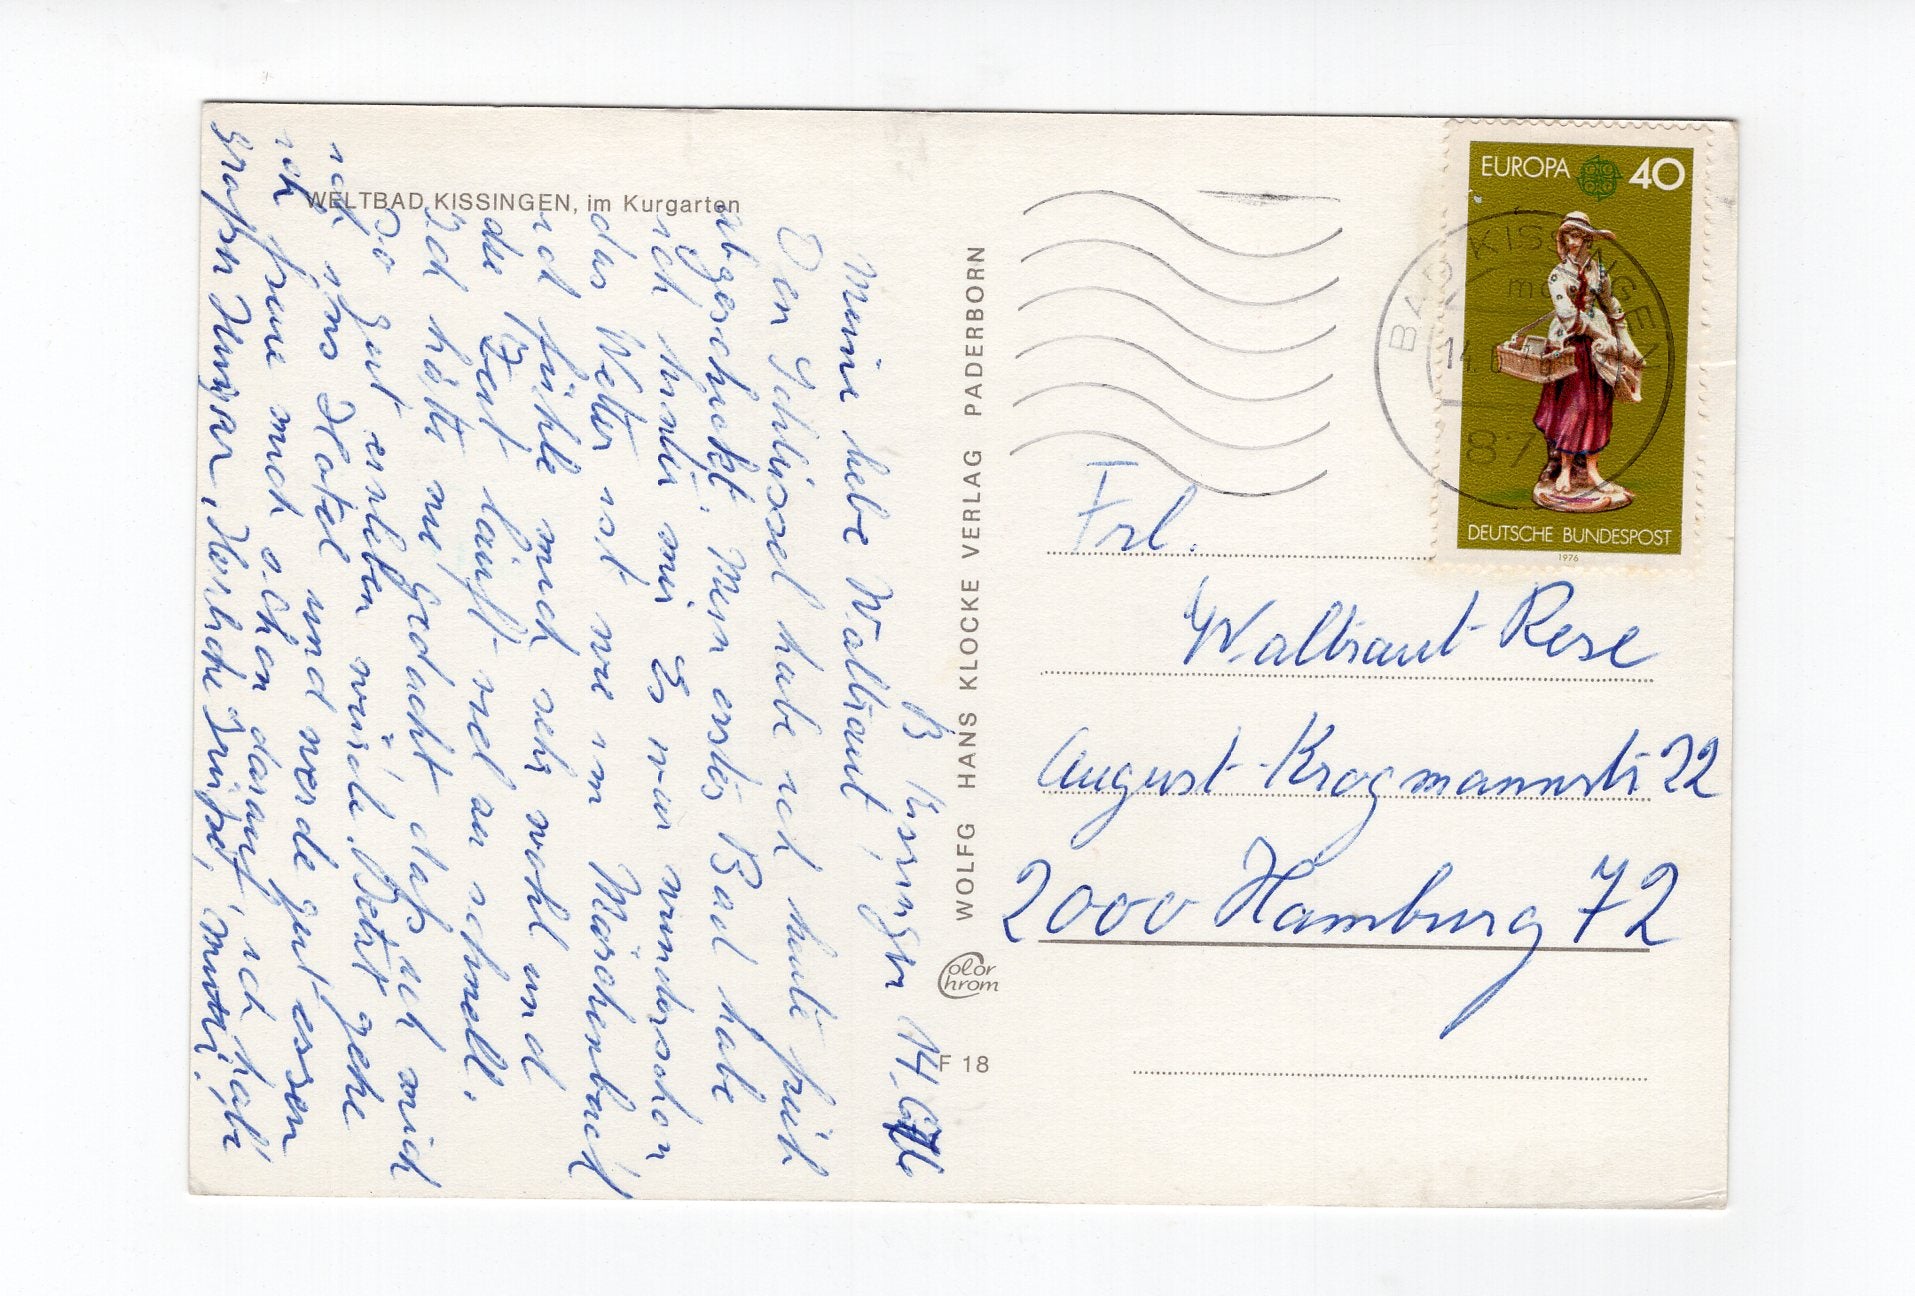 WELTBAD KISSINGEN, im Kurgarten
B Kissingen 14.6.76
Meine liebe Waltraut,
Den Schlüssel habe ich heute früh
abgeschickt. Mein erstes Bad habe
ich hinter mir Es war wunderschön
das Wetter ist wie im Märchenbuch
ich fühle mich sehr wohl und
die Zeit läuft viel zu schnell.
Ich hätte nie gedacht daß ich mich
so gut einleben würde. Jetzt gehe
ich ins Hotel und werde gut essen
ich freue mich schon darauf, ich habe
großen Hunger, Herzliche Grüße, Mutti!
WOLFG HANS KLOCKE VERLAG PADERBORN
Color
Chrom
F 18
EUROPA 40
DEUTSCHE BUNDESPOST
1976
BAD KISSINGEN
14.6
87
Frl.
Waltraut Rese
August-Krogmannstr 22
2000 Hamburg 72